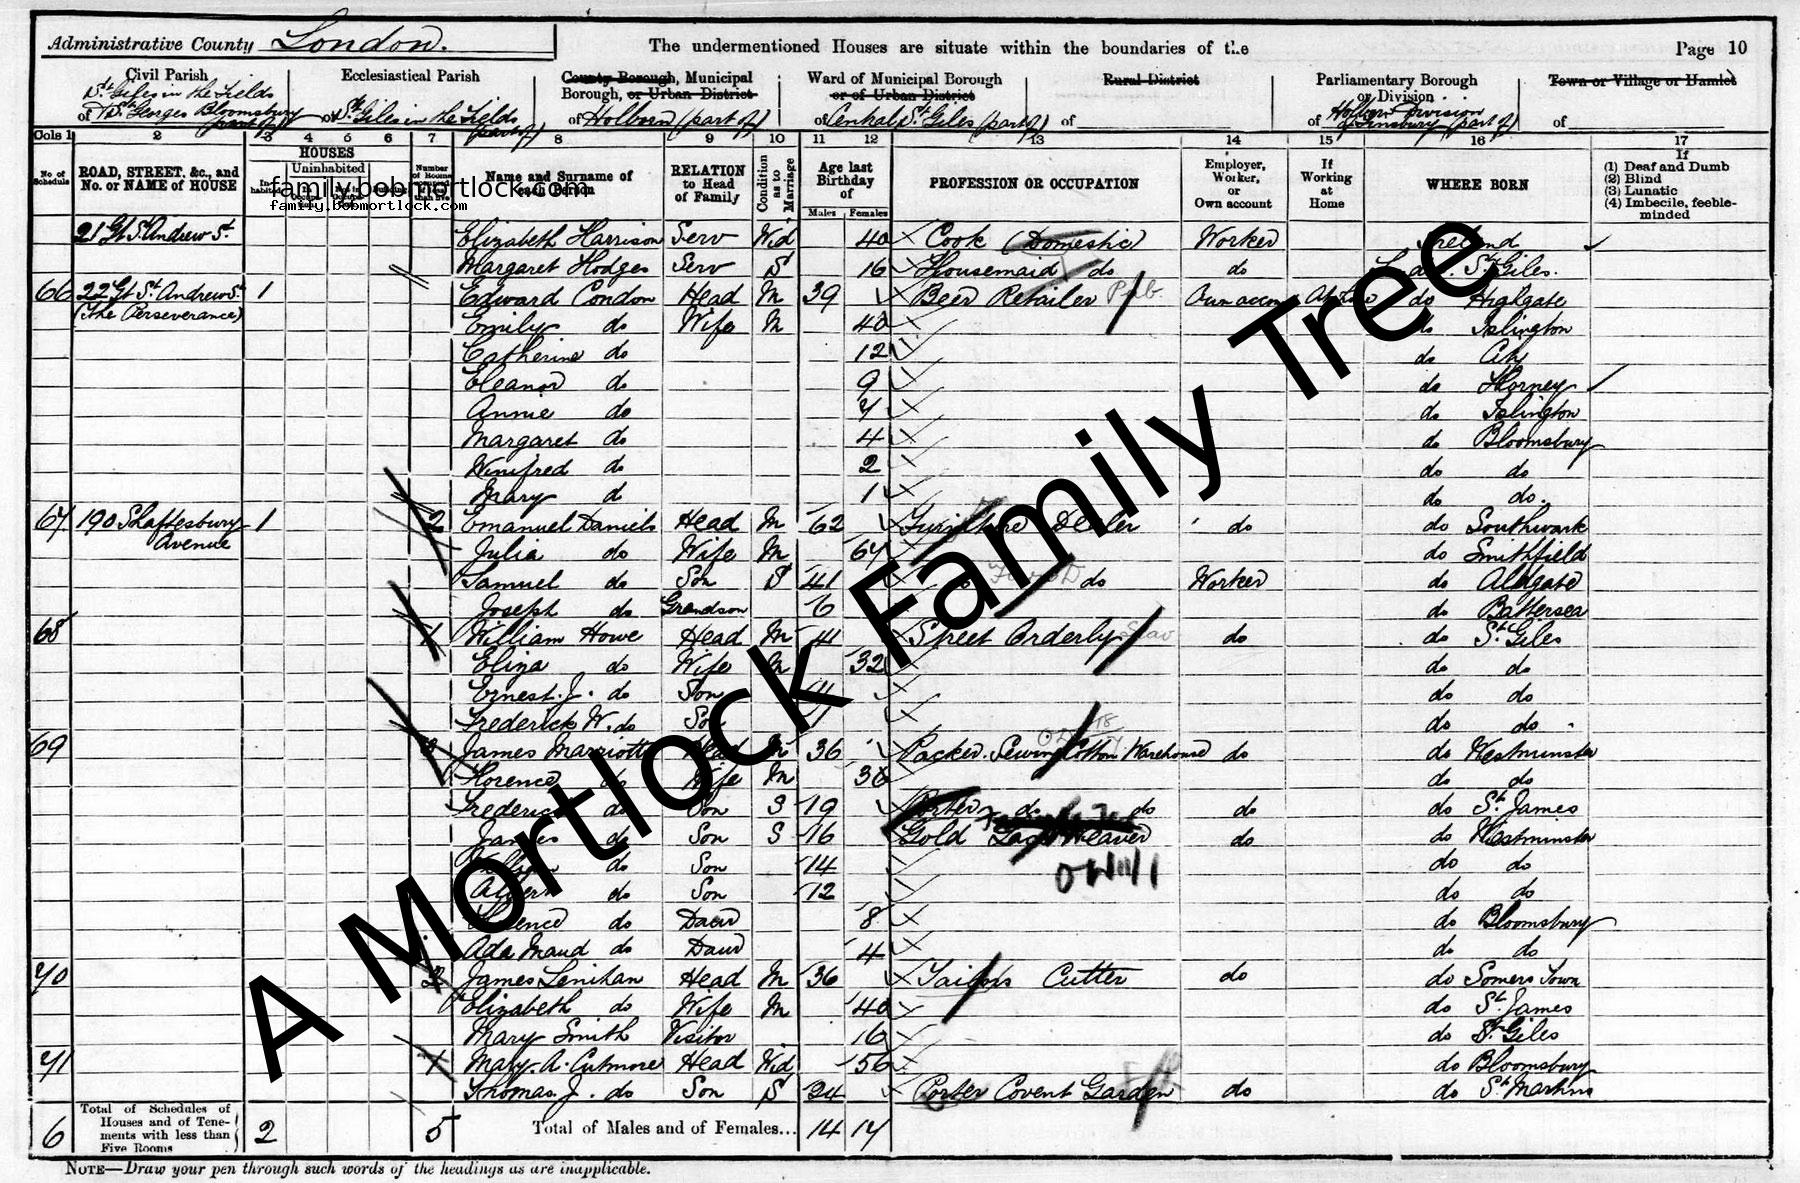 Administrative County London.
The undermentioned Houses are situate within the boundaries of the
Page 10
Civil Parish
St Giles in the Fields
of & St. Georges Bloomsbury
(part of)
Ecclesiastical Parish
of St. Giles in the Fields
(part of)
County Borough, Municipal
Borough, or Urban District
of Holborn (part of)
Ward of Municipal Borough
or of Urban District
of Central St. Giles (part of)
Rural District
of
Parliamentary Borough
or Division
Holborn Division
of Finsbury (part of)
Town or Village or Hamlet
of
Cols 1 2 3 4 5 6 7 8 9 10 11 12 13 14 15 16 17
No. of Schedule
ROAD, STREET, &c., and No. or NAME of HOUSE
HOUSES
Uninhabited
Name and Surname of each Person
RELATION to Head of Family
Condition as to Marriage
Age last Birthday of
Males Females
PROFESSION OR OCCUPATION
Employer, Worker, or Own account
If Working at Home
WHERE BORN
If
(1) Deaf and Dumb
(2) Blind
(3) Lunatic
(4) Imbecile, feeble-minded
family.bobmortlock.com
family.bobmortlock.com
21 Gt St. Andrew St. Elizabeth Harrison Serv Wid 40 Cook (Domestic) Worker Ireland
Margaret Hodges Serv S 16 Housemaid do do St. Giles.
66 22 Gt St. Andrew St. 1 Edward Condon Head M 39 Beer Retailer Pub Own accn At home do Highgate
(The Perseverance) Emily do Wife M 40 do Islington
Catherine do 12 do
Eleanor do 9 do Horney
Annie do 7 do Islington
Margaret do 4 do Bloomsbury
Winifred do 2 do do
Mary d 1 do do.
67 190 Shaftesbury 1 2 Emanuel Daniels Head M 62 Furniture Dealer do do Southwark
Avenue Julia do Wife M 67 do Smithfield
Samuel do Son S 41 do do Worker do Aldgate
Joseph do Grandson 6 do Battersea
68 1 William Howe Head M Street Orderly Scav do do St. Giles
Eliza do Wife M 32 do do
Ernest. J. do Son do do
Frederick W. do Son do do
69 3 James Marriott Head M 36 Packer. Sewing Cotton Warehouse do do Westminster
Florence do Wife M 38 do do
Frederick do Son S 19 Porter do do do do St. James
James do Son S 16 Gold Lace Weaver do do Westminster
do Son 14 do do
Albert do Son 12 do do
Florence do Daur 8 do Bloomsbury
Ada Maud do Daur 4 do do
70 2 James Lenihan Head M 36 Tailors Cutter do do Somers Town
Elizabeth do Wife M 40 do St. James
Mary Smith Visitor 16 do St. Giles
71 1 Mary. A. Cutmore Head Wid 56 do Bloomsbury
Thomas. J. do Son S 24 Porter Covent Garden do do St Martins
6 Total of Schedules of Houses and of Tenements with less than Five Rooms 2 5 Total of Males and of Females... 14 17
NOTE—Draw your pen through such words of the headings as are inapplicable.
A Mortlock Family Tree